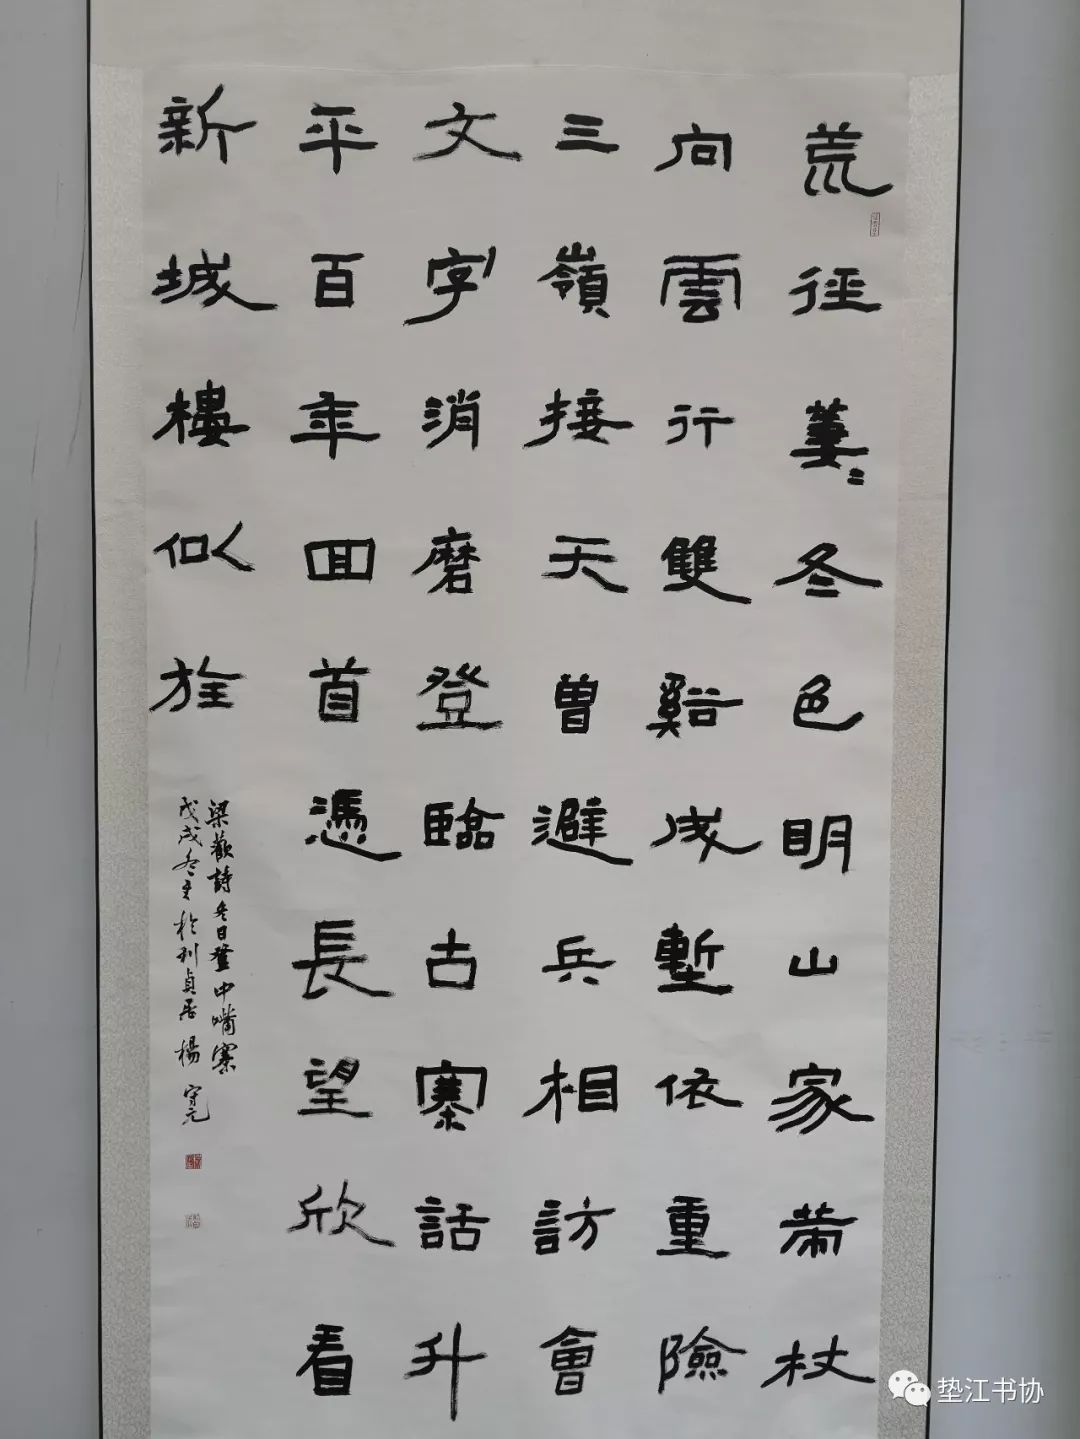 荒徑萋〻冬色明山家帶杖
向雲行雙谿成塹依重險
三嶺接天曾避兵相訪會
文字消磨登臨古寨話升
平百年回首憑長望欣看
新城樓似旌
梁歡詩冬日登中嘴寨
戊戌冬於利貞居楊守元
垫江书协